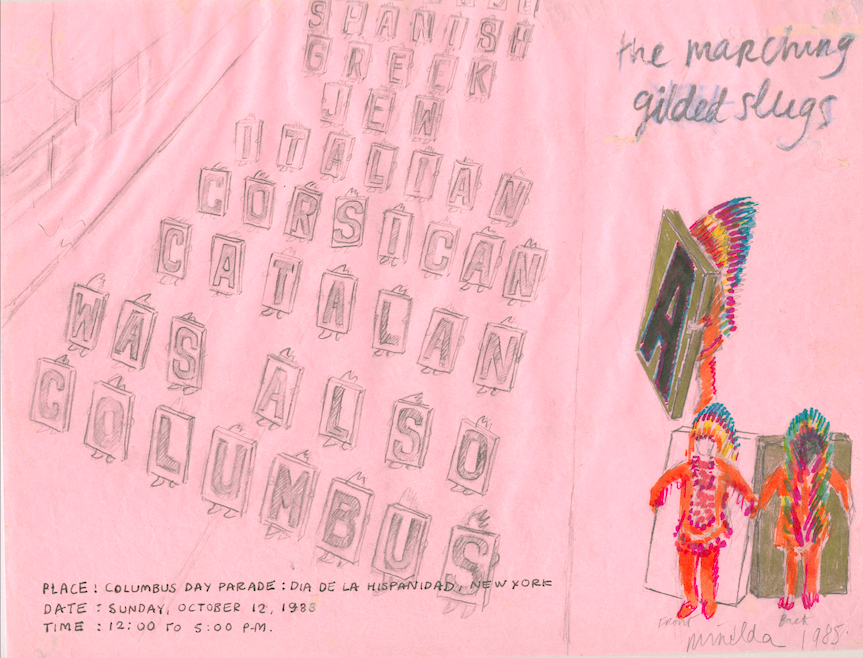 SPANISH
GREEK
JEW
ITALIAN
CORSICAN
CATALAN
WAS ALSO
COLUMBUS
PLACE : COLUMBUS DAY PARADE : DIA DE LA HISPANIDAD, NEW YORK
DATE : SUNDAY, OCTOBER 12,
TIME : 12:00 TO 5:00 P.M.
the marching
gilded slugs
A
Front Back
1985.